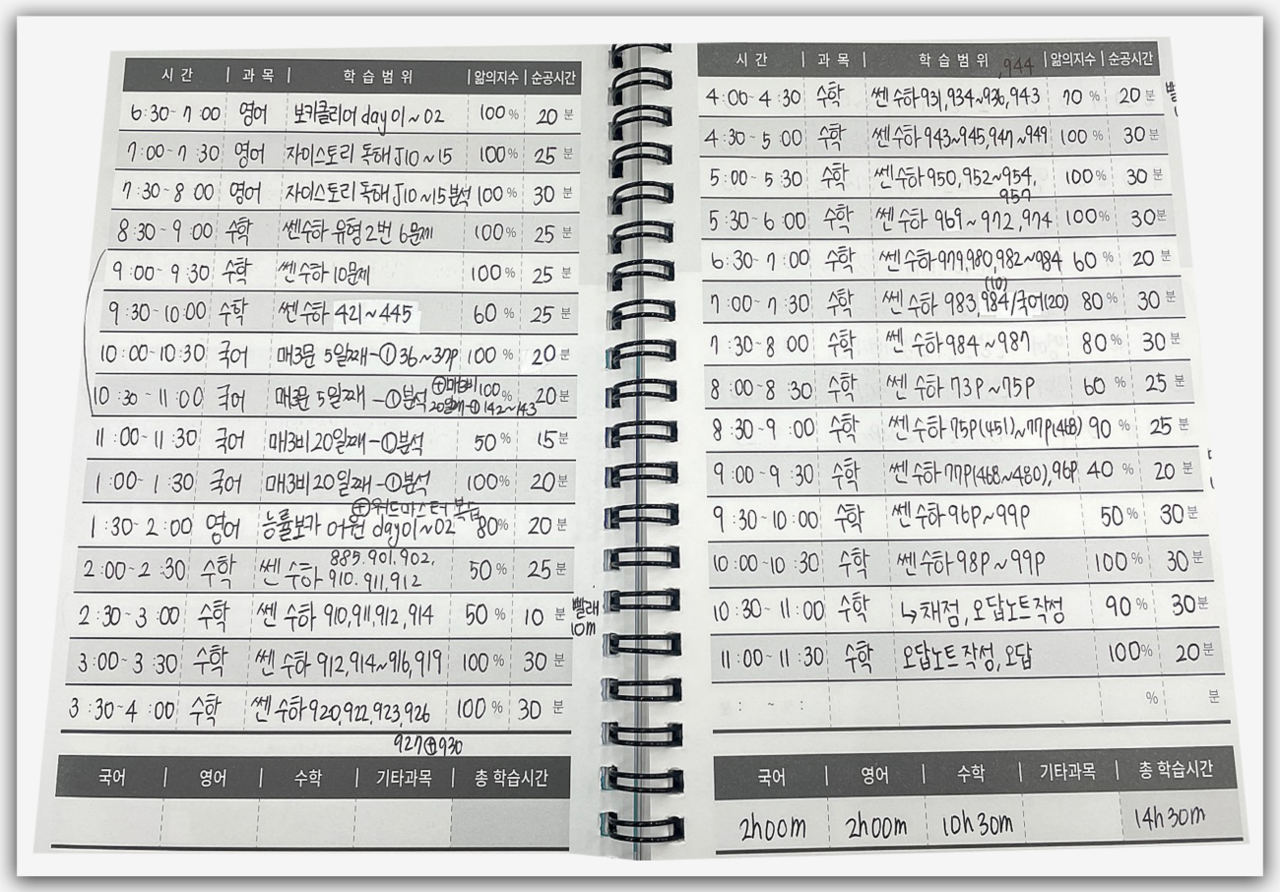 시 간 | 과 목 | 학 습 범 위 | 앎의지수 | 순공시간
6:30~7:00 영어 보카클리어 day 01~02 100% 20분
7:00~7:30 영어 자이스토리 독해 J10~15 100% 25분
7:30~8:00 영어 자이스토리 독해 J10~15분석 100% 30분
8:30~9:00 수학 쎈수하 유형 2번 6문제 100% 25분
9:00~9:30 수학 쎈수하 10문제 100% 25분
9:30~10:00 수학 쎈수하 421~445 60% 25분
10:00~10:30 국어 매3문 5일째-① 36~37p 100% 20분
10:30~11:00 국어 매3문 5일째-①분석 ⊕매3비 20일째-① 142~143 100% 20분
11:00~11:30 국어 매3비 20일째-①분석 50% 15분
1:00~1:30 국어 매3비 20일째-①분석 100% 20분
⊕워드마스터 복습
1:30~2:00 영어 능률보카 어원 day 01~02 80% 20분
2:00~2:30 수학 쎈 수하 885.901.902, 910.911,912 50% 25분
2:30~3:00 수학 쎈 수하 910,911,912,914 50% 10분 빨래 10m
3:00~3:30 수학 쎈 수하 912,914~916,919 100% 30분
3:30~4:00 수학 쎈 수하 920,922,923,926 100% 30분
927⊕930
국어 | 영어 | 수학 | 기타과목 | 총 학습시간
시 간 | 과 목 | 학 습 범 위 | 앎의지수 | 순공시간
,944
4:00~4:30 수학 쎈 수하 931,934~936,943 70% 20분
4:30~5:00 수학 쎈 수하 943~945,947~949 100% 30분
5:00~5:30 수학 쎈 수하 950,952~954, 957 100% 30분
5:30~6:00 수학 쎈 수하 969~972,974 100% 30분
6:30~7:00 수학 쎈 수하 979,980,982~984 60% 20분
(10)
7:00~7:30 수학 쎈 수하 983,984/국어(20) 80% 30분
7:30~8:00 수학 쎈 수하 984~987 80% 30분
8:00~8:30 수학 쎈 수하 73p~75p 60% 25분
8:30~9:00 수학 쎈 수하 75p(451)~77p(468) 90% 25분
9:00~9:30 수학 쎈 수하 77p(468~480),96p 40% 20분
9:30~10:00 수학 쎈 수하 96p~99p 50% 30분
10:00~10:30 수학 쎈 수하 98p~99p 100% 30분
10:30~11:00 수학 ↳채점, 오답노트작성 90% 30분
11:00~11:30 수학 오답노트작성, 오답 100% 20분
: ~ : % 분
국어 | 영어 | 수학 | 기타과목 | 총 학습시간
2h00m 2h00m 10h30m 14h30m